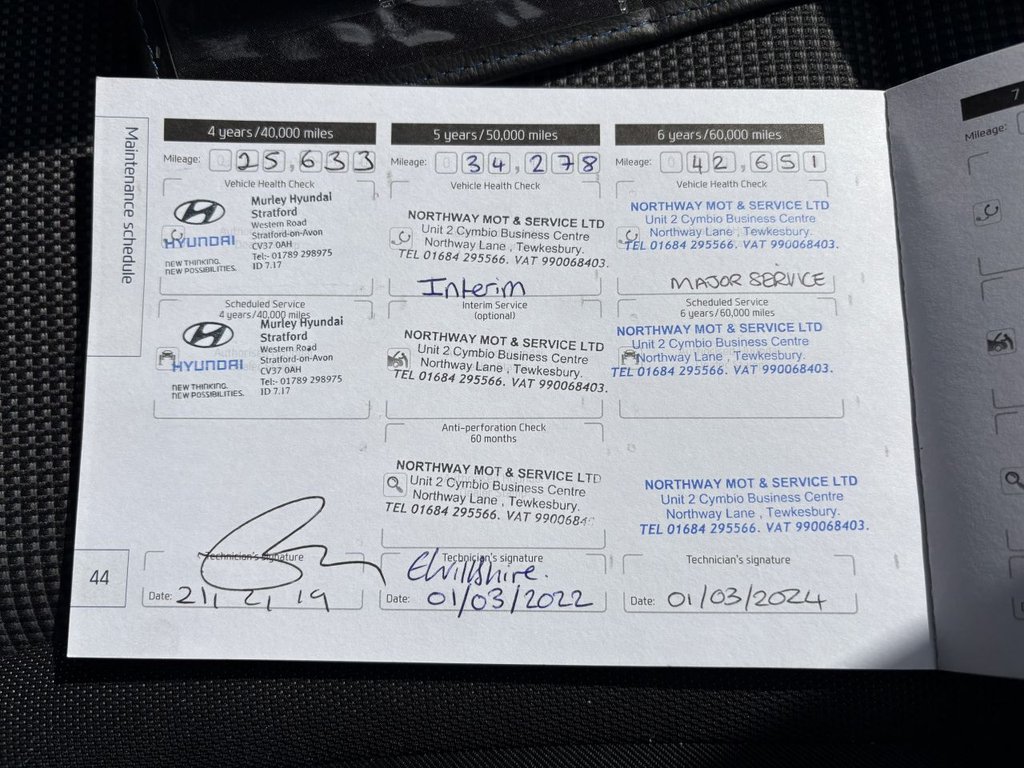 Maintenance schedule
44
4 years/40,000 miles
Mileage: 025,633
Vehicle Health Check
HYUNDAI
NEW THINKING.
NEW POSSIBILITIES.
Murley Hyundai
Stratford
Western Road
Stratford-on-Avon
CV37 0AH
Tel:- 01789 298975
ID 7.17
Scheduled Service
4 years/40,000 miles
HYUNDAI
NEW THINKING.
NEW POSSIBILITIES.
Murley Hyundai
Stratford
Western Road
Stratford-on-Avon
CV37 0AH
Tel:- 01789 298975
ID 7.17
Technician's signature
Date: 21, 2, 19
5 years/50,000 miles
Mileage: 034,278
Vehicle Health Check
NORTHWAY MOT & SERVICE LTD
Unit 2 Cymbio Business Centre
Northway Lane , Tewkesbury.
TEL 01684 295566. VAT 990068403.
Interim
Interim Service
(optional)
NORTHWAY MOT & SERVICE LTD
Unit 2 Cymbio Business Centre
Northway Lane , Tewkesbury.
TEL 01684 295566. VAT 990068403.
Anti-perforation Check
60 months
NORTHWAY MOT & SERVICE LTD
Unit 2 Cymbio Business Centre
Northway Lane , Tewkesbury.
TEL 01684 295566. VAT 9900684
Technician's signature
Date: 01/03/2022
6 years/60,000 miles
Mileage: 042,651
Vehicle Health Check
NORTHWAY MOT & SERVICE LTD
Unit 2 Cymbio Business Centre
Northway Lane , Tewkesbury.
TEL 01684 295566. VAT 990068403.
MAJOR SERVICE
Scheduled Service
6 years/60,000 miles
NORTHWAY MOT & SERVICE LTD
Unit 2 Cymbio Business Centre
Northway Lane , Tewkesbury.
TEL 01684 295566. VAT 990068403.
NORTHWAY MOT & SERVICE LTD
Unit 2 Cymbio Business Centre
Northway Lane , Tewkesbury.
TEL 01684 295566. VAT 990068403.
Technician's signature
Date: 01/03/2024
7
Mileage: